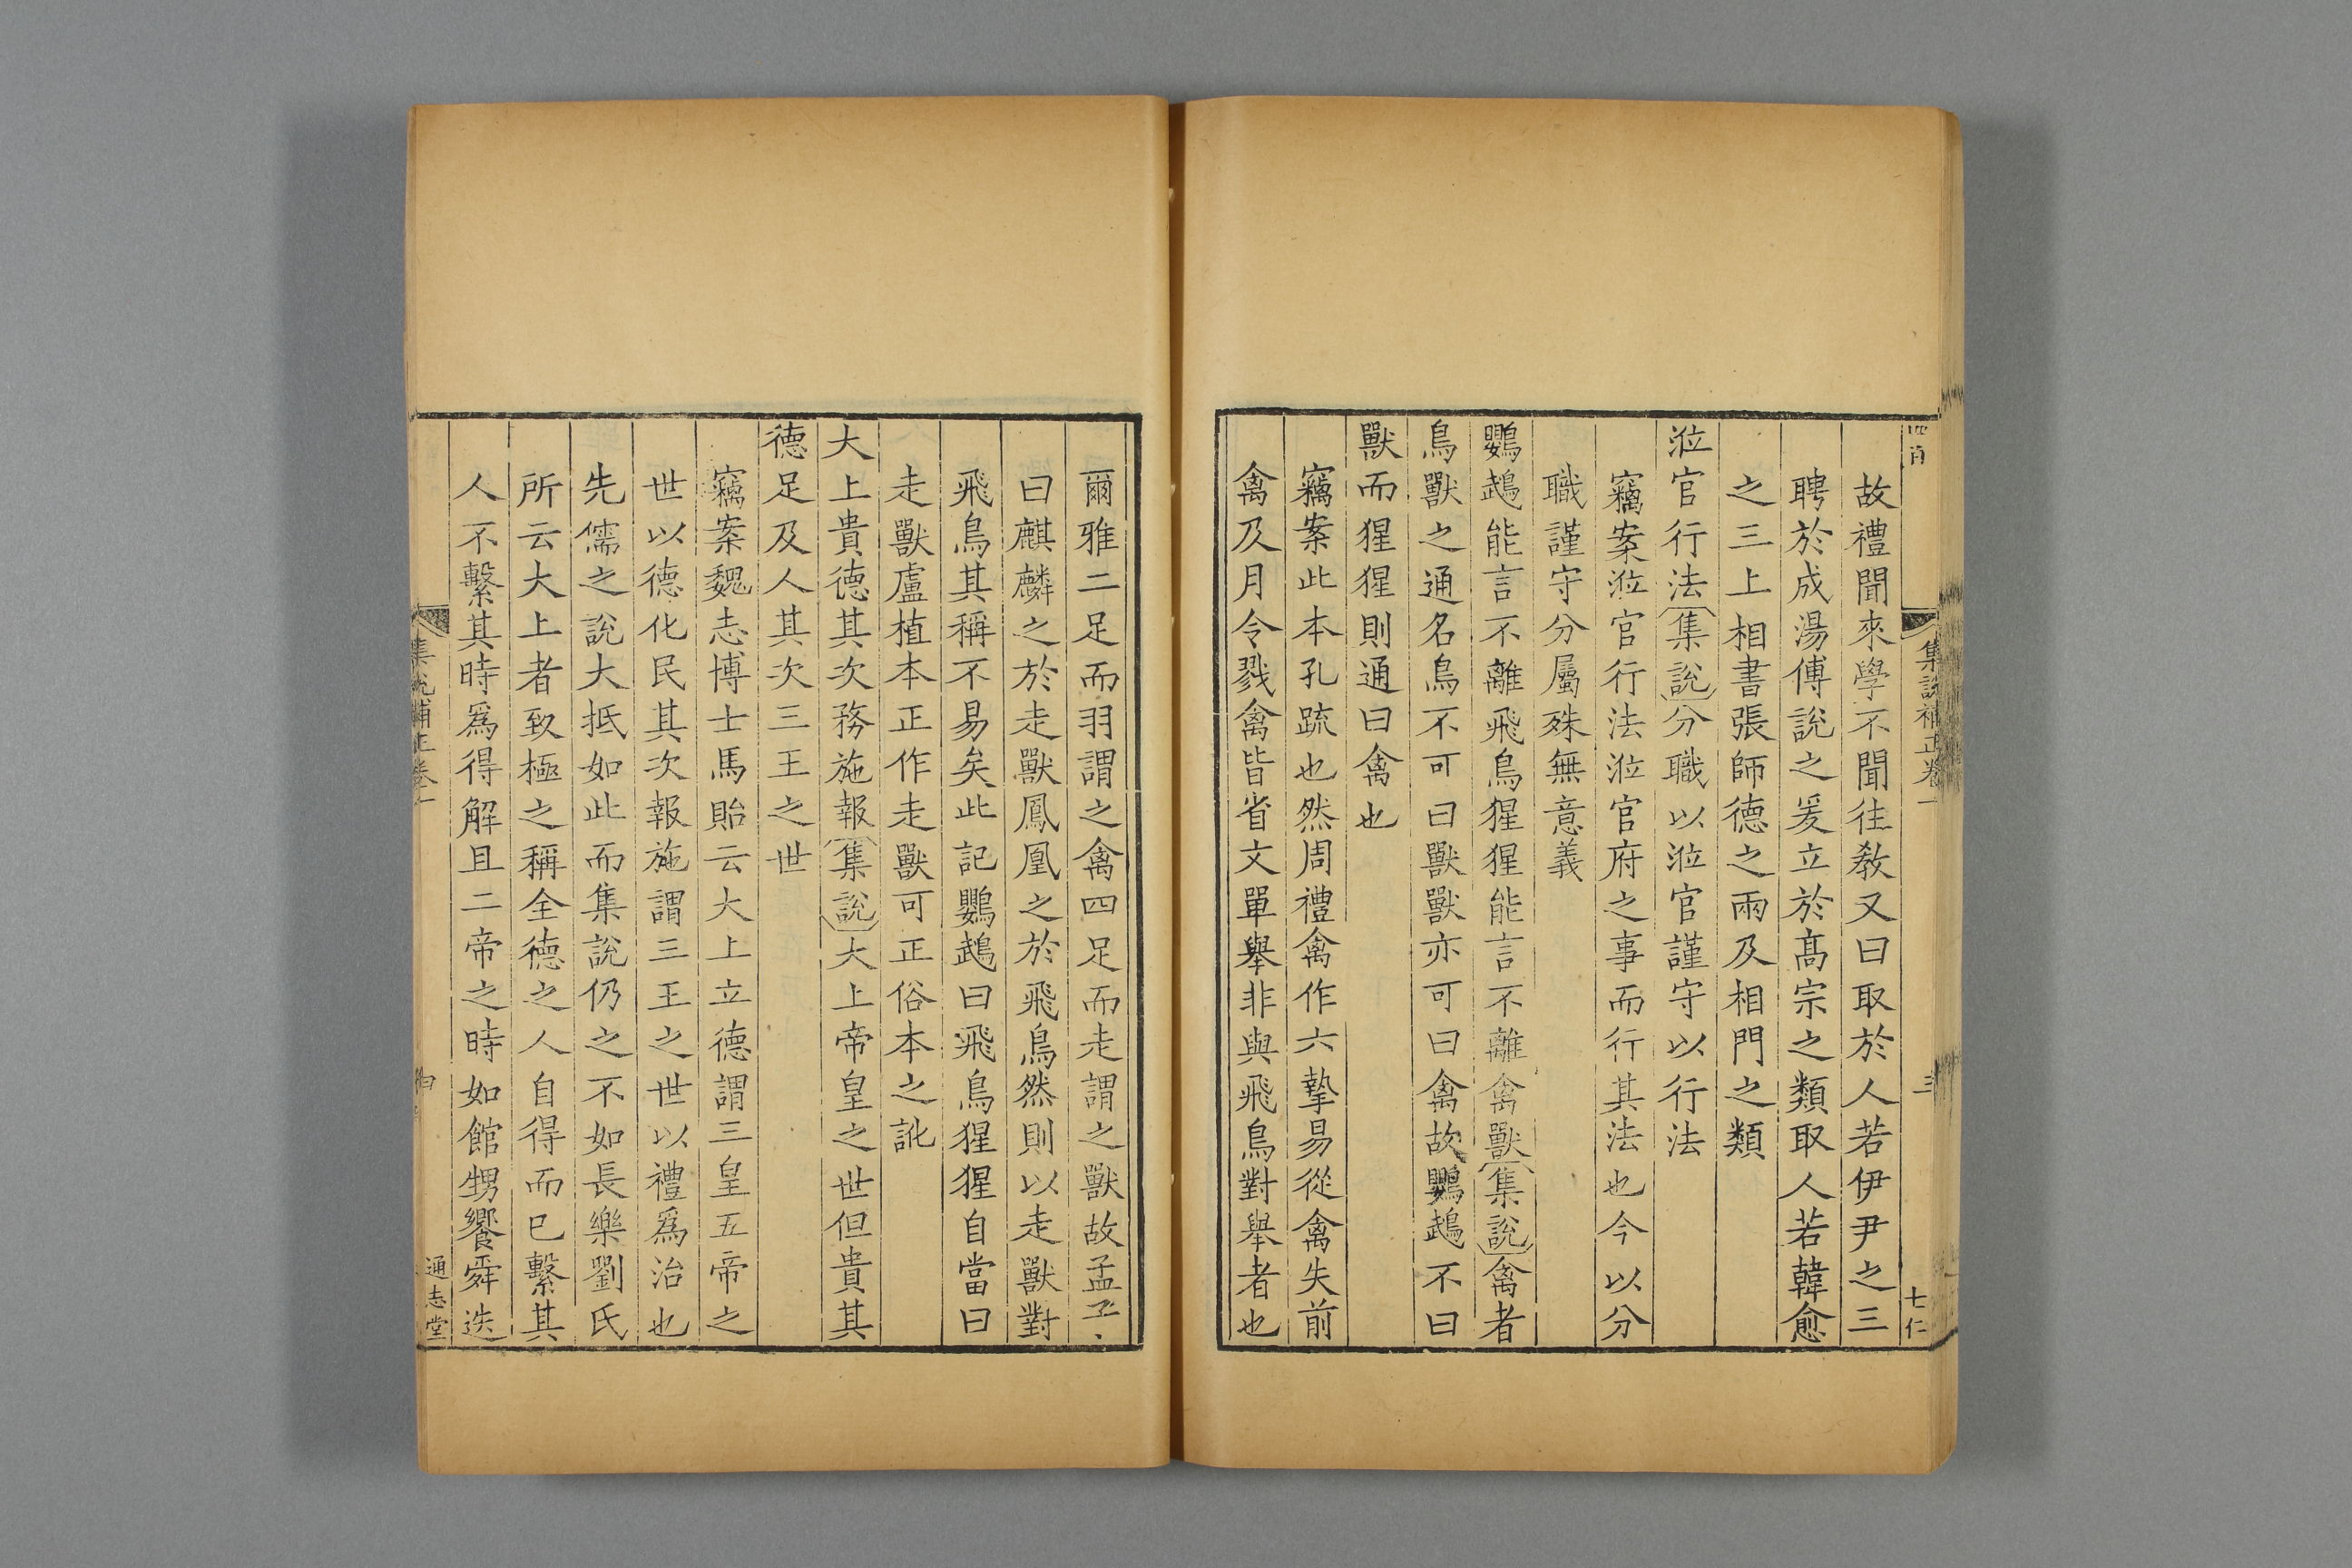 故禮聞來學不聞往教又曰取於人若伊尹之三
聘於成湯傅說之爰立於髙宗之類取人若韓愈
之三上相書張師德之兩及相門之類
涖官行法集說分職以涖官謹守以行法
竊案涖官行法涖官府之事而行其法也今以分
職謹守分屬殊無意義
鸚鵡能言不離飛鳥猩猩能言不離禽獸集說禽者
鳥獸之通名鳥不可曰獸獸亦可曰禽故鸚鵡不曰
獸而猩猩則通曰禽也
竊案此本孔疏也然周禮禽作六摯易從禽失前
禽及月令戮禽皆省文單舉非與飛鳥對舉者也
集說補正卷一
三
七仁
爾雅二足而羽謂之禽四足而走謂之獸故孟子
曰麒麟之於走獸鳳凰之於飛鳥然則以走獸對
飛鳥其稱不易矣此記鸚鵡曰飛鳥猩猩自當曰
走獸盧植本正作走獸可正俗本之訛
大上貴德其次務施報集說大上帝皇之世但貴其
德足及人其次三王之世
竊案魏志博士馬貽云大上立德謂三皇五帝之
世以德化民其次報施謂三王之世以禮爲治也
先儒之說大抵如此而集說仍之不如長樂劉氏
所云大上者致極之稱全德之人自得而已繫其
人不繫其時爲得解且二帝之時如館甥饗舜迭
集說補正卷一
通志堂